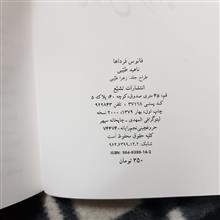 فانوس فرداها
ناهید طیبی
طراح جلد: زهرا طیبی
انتشارات تشیّع
قم، ۴۵ متری صدوق، کوچه ۶۰، پلاک ۵
کد پستی ۳۷۱۶۸ - تلفن: ۹۲۲۸۴۳
چاپ اول، بهار ۱۳۷۹، ۲۰۰۰ نسخه
لیتوگرافی المهدی - چاپخانه سپهر
حروفچینی نجم‌رایانه ۷۴۴۷۴۰
کلیه حقوق محفوظ است
ISBN: 964-6395-14-2
۳۵۰ تومان